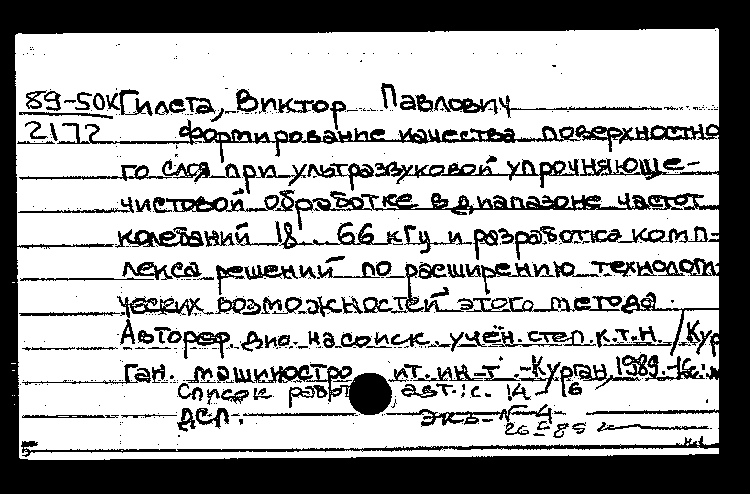 89-50К Гилета, Виктор Павлович
2172 Формирование качества поверхностно
го слоя при ультразвуковой упрочняюще-
чистовой обработке в диапазоне частот
колебаний 18..66 кГц и разработка комп-
лекса решений по расширению технологи
ческих возможностей этого метода.
Автореф. дис. на соиск. учен. степ. к.т.н. /Кур
ган. машиностро ит. ин-т. -Курган, 1989.-16с.:
Список работ авт.: с. 14-16
ДСП. экз-№4